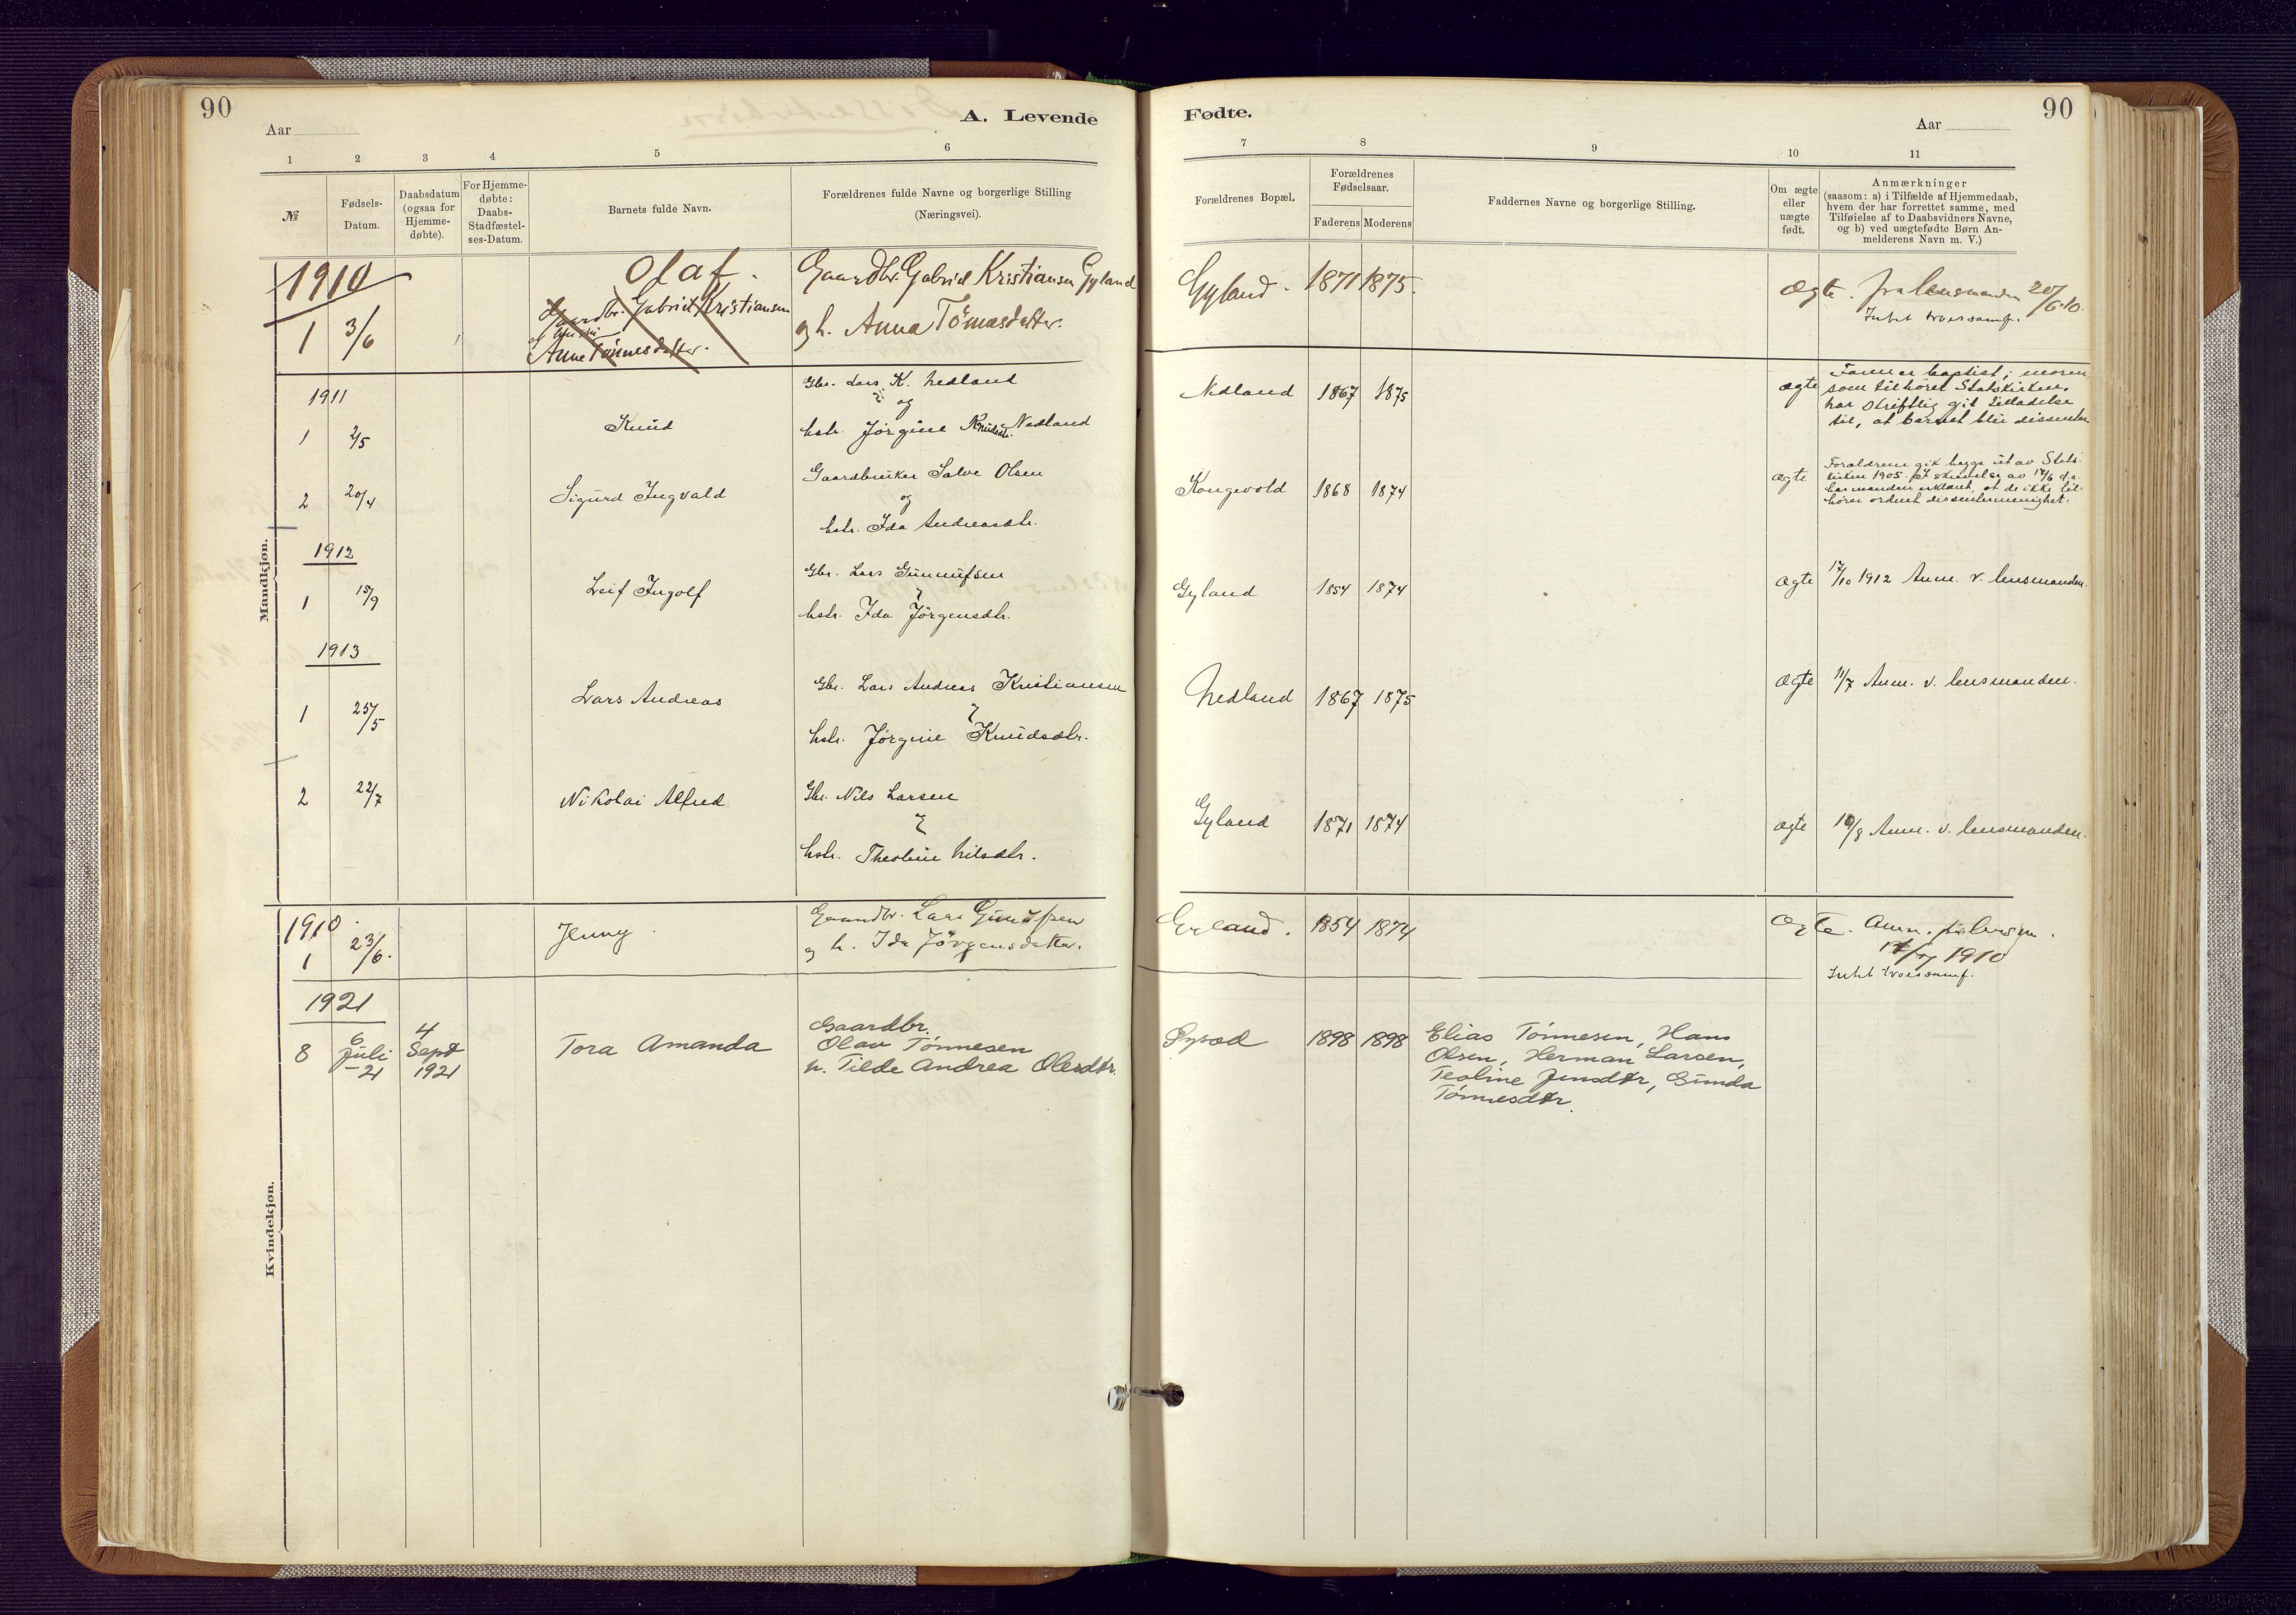 90
Aar
A. Levende
1 2 3 4 5 6
№
Fødsels-
Datum.
Daabsdatum
(ogsaa for
Hjemme-
døbte).
For Hjemme-
døbte:
Daabs-
Stadfæstel-
ses-Datum.
Barnets fulde Navn.
Forældrenes fulde Navne og borgerlige Stilling
(Næringsvei).
Fødte.
90
Aar
7 8 9 10 11
Forældrenes Bopæl.
Forældrenes
Fødselsaar.
Faderens Moderens
Faddernes Navne og borgerlige Stilling.
Om ægte
eller
uægte
født.
Anmærkninger
(saasom: a) i Tilfælde af Hjemmedaab,
hvem der har forrettet samme, med
Tilføielse af to Daabsvidners Navne,
og b) ved uægtefødte Børn An-
melderens Navn m. V.)
Mandkjøn.
1910
1 3/6
Olaf.
Gaardbr. Gabriel Kristiansen
Anne Tønnesdatter.
Gaardbr. Gabriel Kristiansen Gyland
og h. Anna Tomasdatter.
Gyland. 1871 1875.
Ægte. fra lensmanden 20/6 10.
Intet troessamf.
1911
1 2/5
Knud
Gbr. Lars K. Nedland
og
hstr. Jørgine Knudsdtr. Nedland
Nedland 1867 1875
ægte
Faren er baptist; moren
som tilhører Statskirken,
har skriftlig git tilladelse
til, at barnet blir dissenter
2 20/4
Sigurd Ingvald
Gaardbruker Salve Olsen
og
hstr. Ida Andreasdtr.
Kongevold 1868 1874
ægte
Forældrene gik begge ut av Stats-
kirken 1905. I skrivelse av 17/6 d.a.
har manden erklæret, at de ikke til-
hører ordnet dissentermenighet.
1912
1 15/9
Leif Ingolf
Gbr. Lars Gunnufsen
hstr. Ida Jørgensdtr.
Gyland 1854 1874
ægte 17/10 1912 Anm. v. lensmanden.
1913
1 25/5
Lars Andreas
Gbr. Lars Andreas Kristiansen
hstr. Jørgine Knudsdtr.
Nedland 1867 1875
ægte 11/7 Anm. v. lensmanden.
2 22/7
Nikolai Alfred
Gbr. Nils Larsen
hstr. Theoline Nilsdtr.
Gyland 1871 1874
ægte 19/8 Anm. v. lensmanden.
Kvindekjøn.
1910.
1 23/6.
Jenny.
Gaardbr. Lars Gunufsen
og h. Ida Jørgensdatter.
Gyland. 1854 1874
Ægte. Anm.
1910
Intet troessamf.
1921
8 6 Juli -21 4 Sept 1921
Tora Amanda
Gaardbr.
Olav Tønnesen
h. Tilde Andrea Olesdtr.
1898 1898
Elias Tønnesen, Hans
Olsen, Herman Larsen,
Teoline Jensdtr, Gunda
Tønnesdtr.